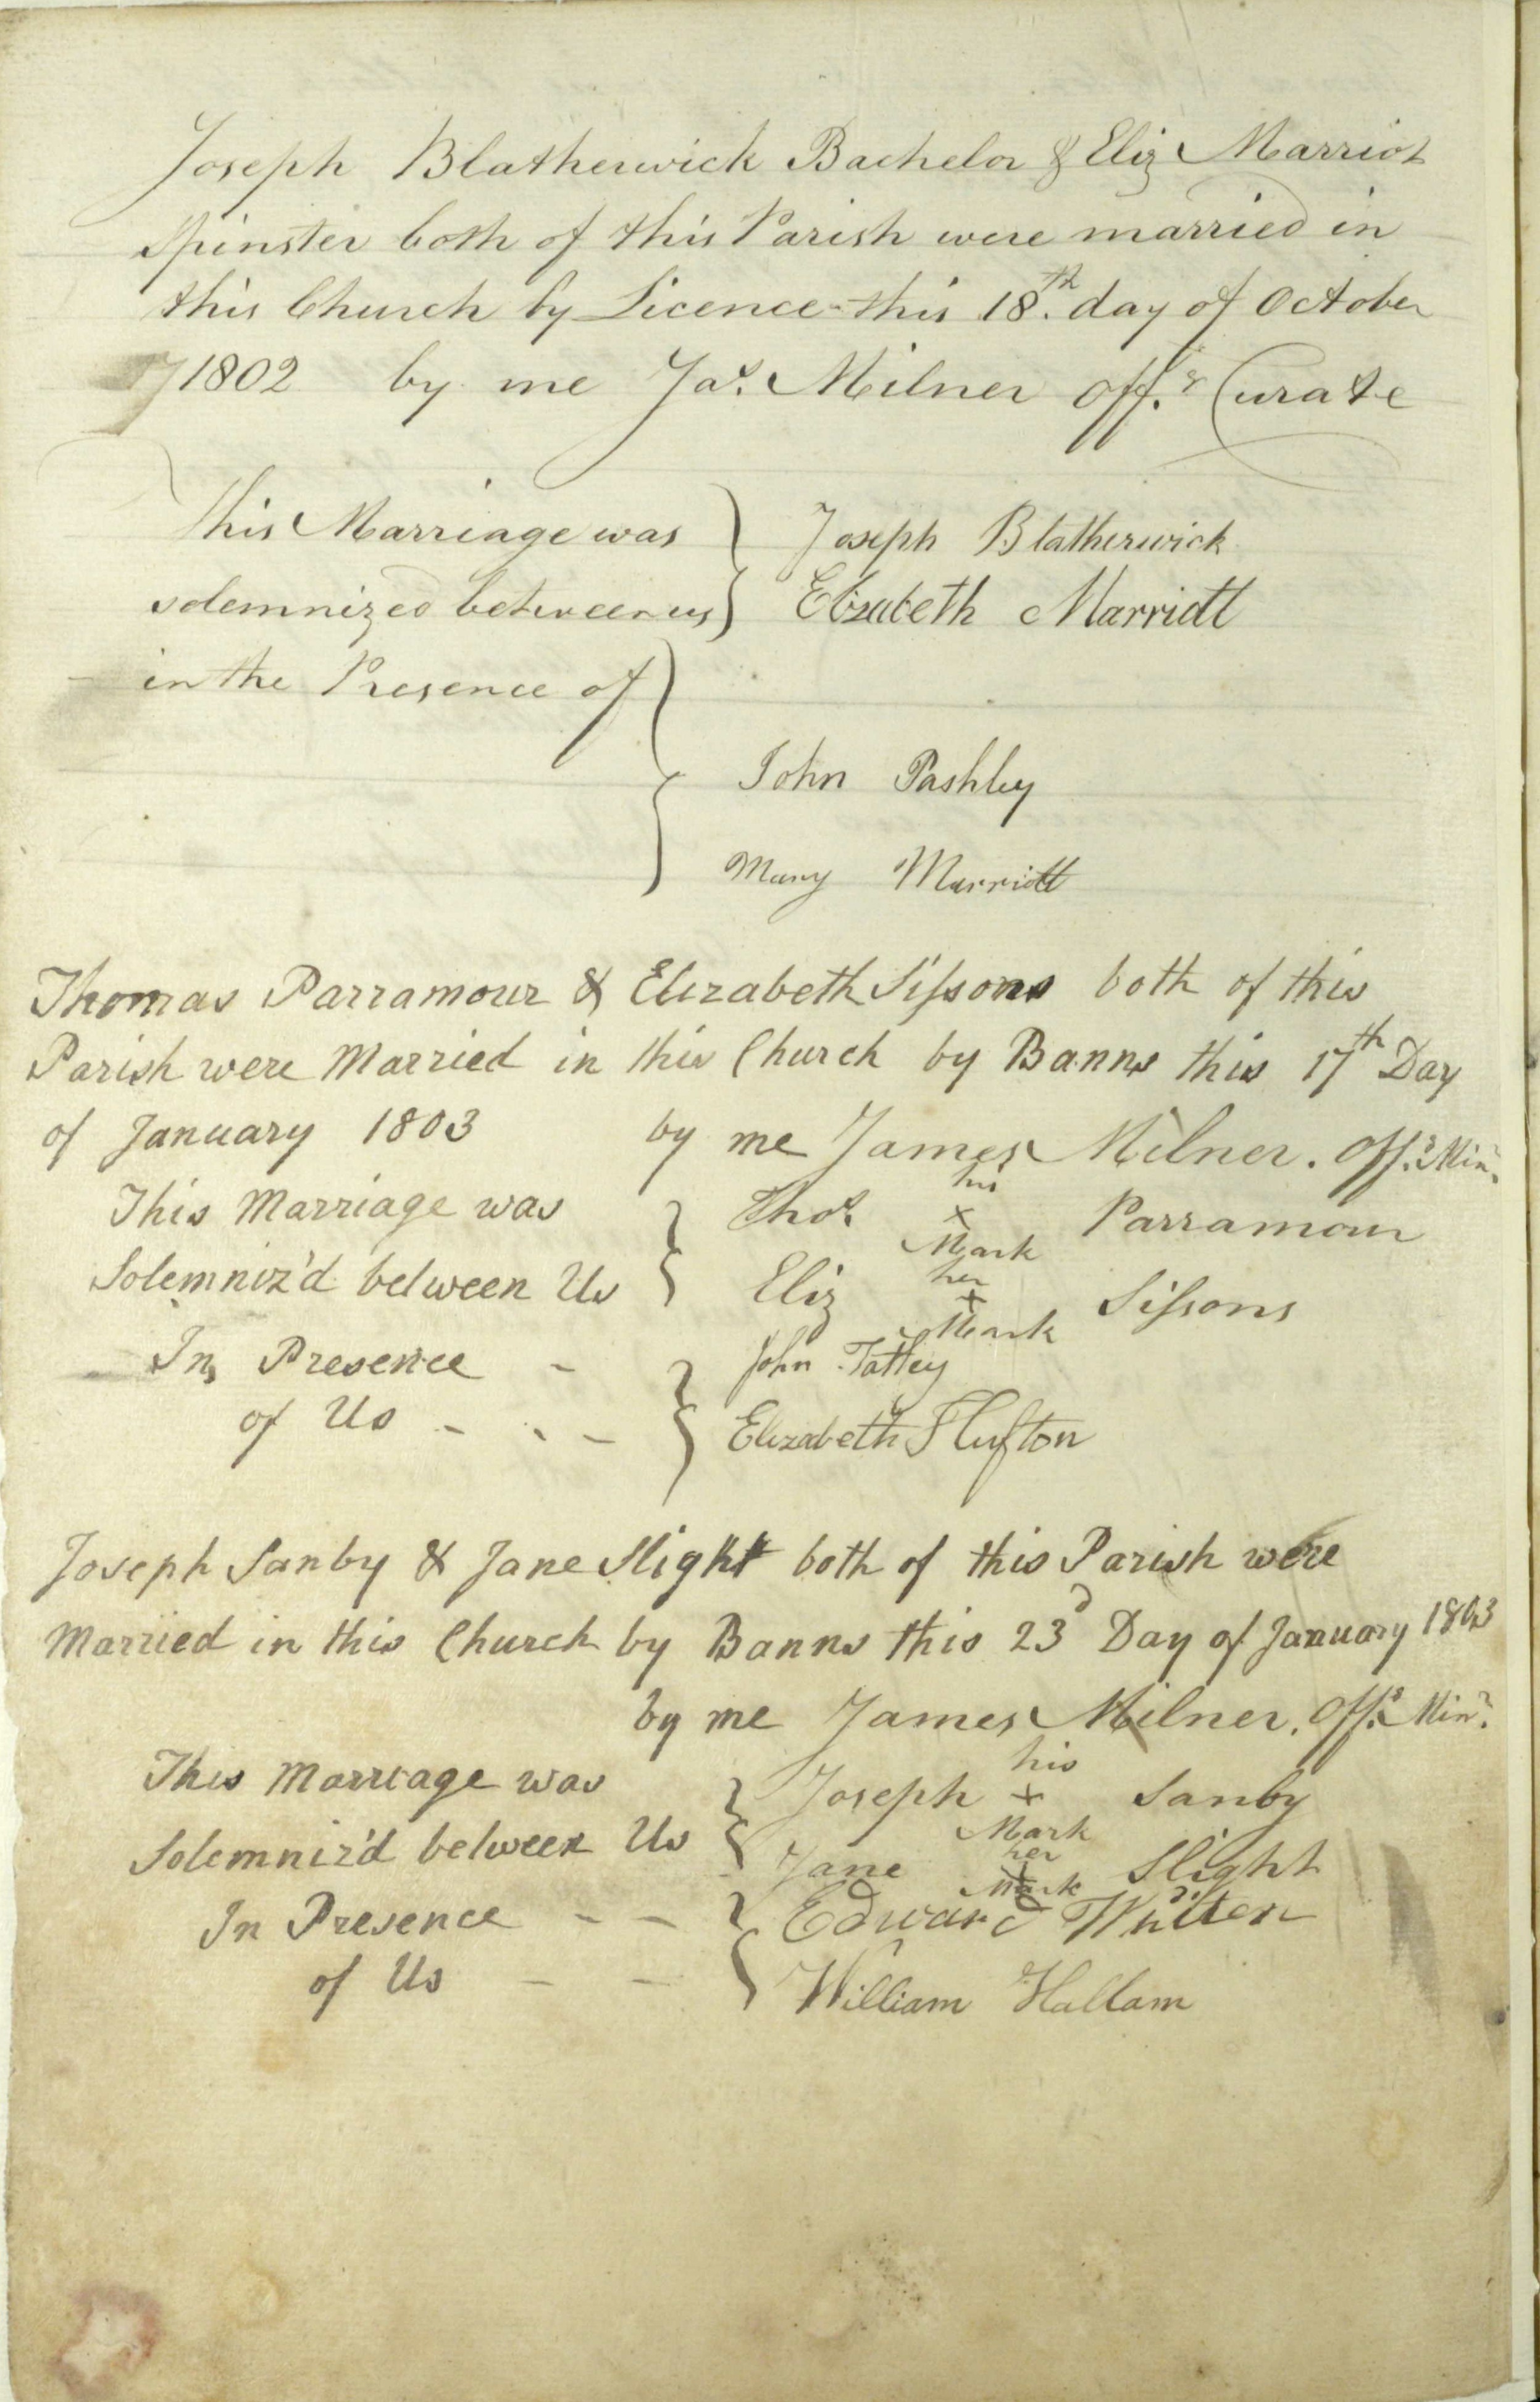 Joseph Blatherwick Bachelor & Eliz Marriot
Spinster both of this Parish were married in
this Church by Licence this 18.th day of October
1802 by me Jas. Milner Off.g Curate
This Marriage was } Joseph Blatherwick
solemnized between us } Elizabeth Marriott
in the Presence of }
John Pashley
Mary Marriott
Thomas Parramour & Elizabeth Siſsons both of this
Parish were Married in this Church by Banns this 17th Day
of January 1803 by me James Milner. Off.g Min.r
This Marriage was } Thos. his x Mark Parramour
Solemniz'd between Us } Eliz her x Mark Siſsons
In Presence - } John Tatley
of Us - - - } Elizabeth
Joseph Sanby & Jane Slight both of this Parish were
Married in this Church by Banns this 23d Day of January 1803
by me James Milner. Off.g Min.r
This Marriage was } Joseph his x Mark Sanby
Solemniz'd between Us } Jane her x Mark Slight
In Presence - - } Edward
of Us - - } William Hallam